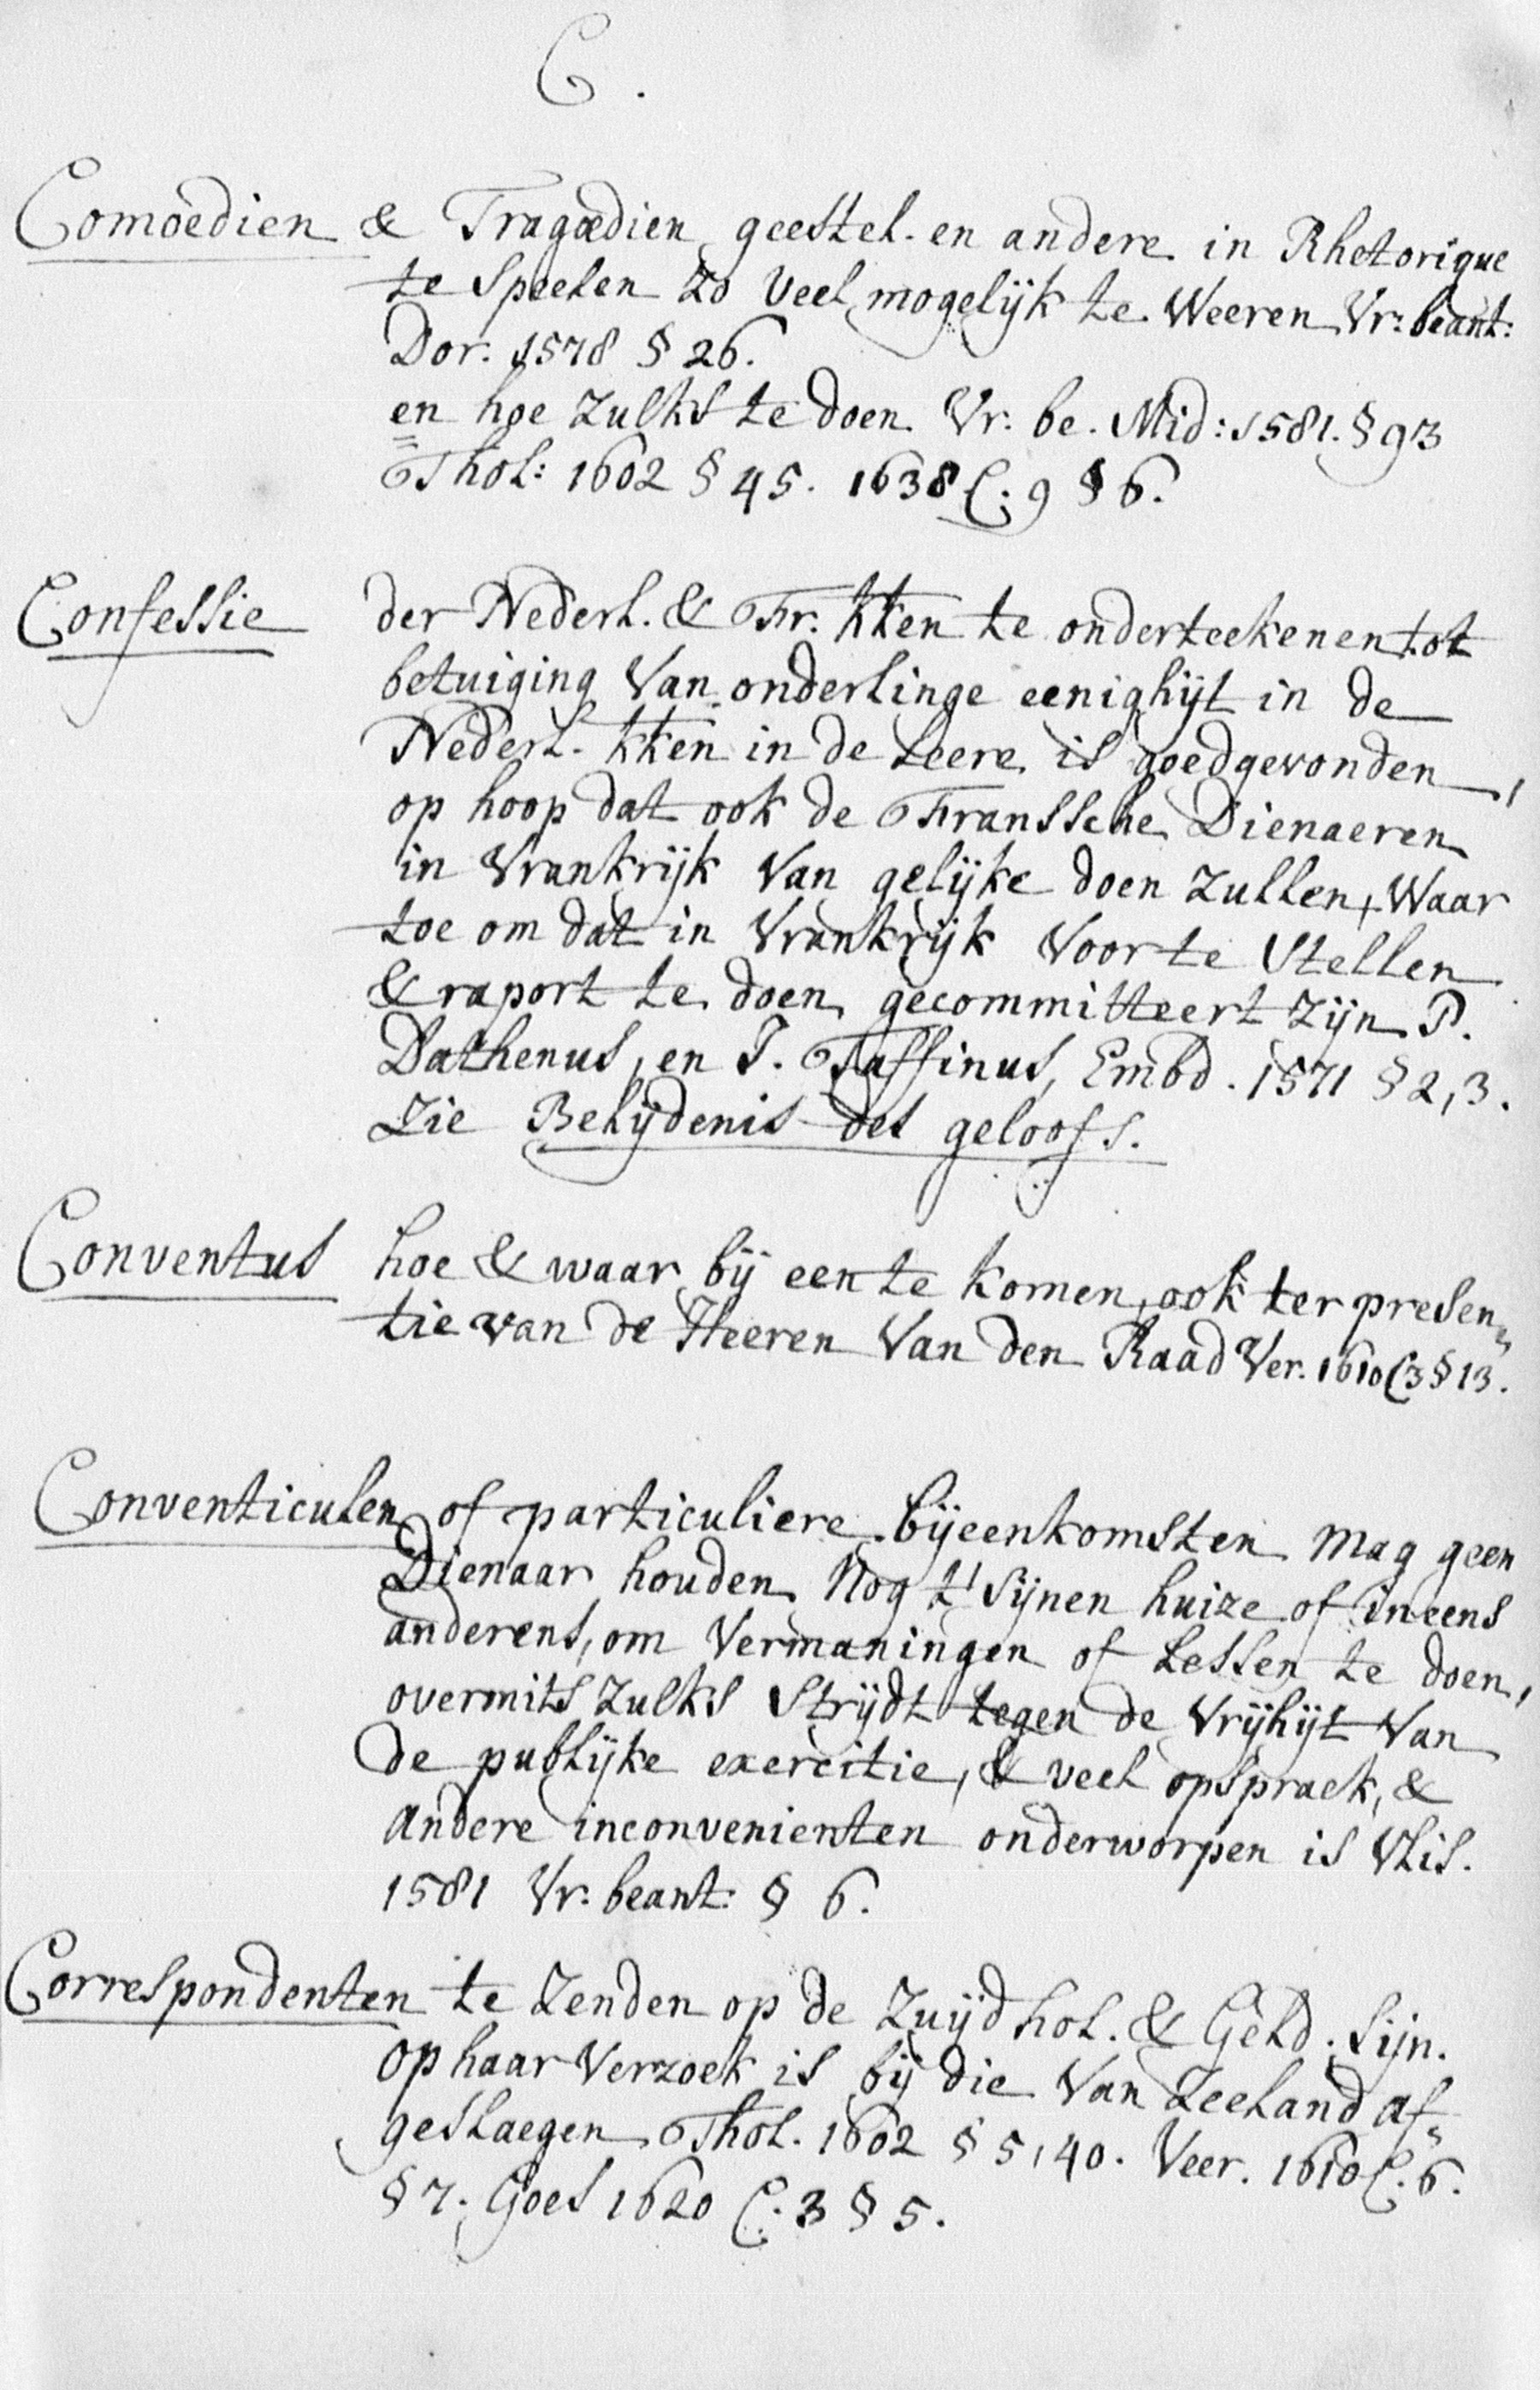 C.
Comoedien & Tragœdien geestel. en andere in Rhetorique
te speelen zo veel mogelijk te weeren Vr: beant:
Dor: 1578 § 26.
en hoe zulks te doen. Vr: be. Mid: 1581. § 93
Thol: 1602 § 45. 1638 C. 9 § 6.
Confessie der Nederl. & Fr. kken te onderteekenen tot
betuiging van onderlinge eenighijt in de
Nederl. kken in de Leere is goedgevonden,
op hoop dat ook de Franssche Dienaeren
in Vrankrijk van gelijke doen zullen, waar
toe om dat in Vrankrijk voor te stellen
& raport te doen gecommitteert zijn P.
Dathenus, en J. Taffinus, Embd. 1571 § 2, 3.
Zie Belijdenis des geloofs.
Conventus hoe & waar bij een te komen, ook ter presen„
tie van de Heeren van den Raad Ver. 1610 C3 § 13.
Conventiculen of particuliere bijeenkomsten mag geen
Dienaar houden nog t' sijnen huize of in eens
anderens, om vermaningen of Lessen te doen,
overmits zulks strijdt tegen de vrijhijt van
de publijke exercitie, & veel opspraek, &
andere inconvenienten onderworpen is Vlis.
1581 Vr: beant: § 6.
Correspondenten te zenden op de Zuijdhol. & Geld. Sijn.
op haar verzoek is bij die van Zeeland af„
geslaegen Thol. 1602 § 5, 40. Veer. 1610 C. 6.
§ 7. Goes 1620 C. 3 § 5.